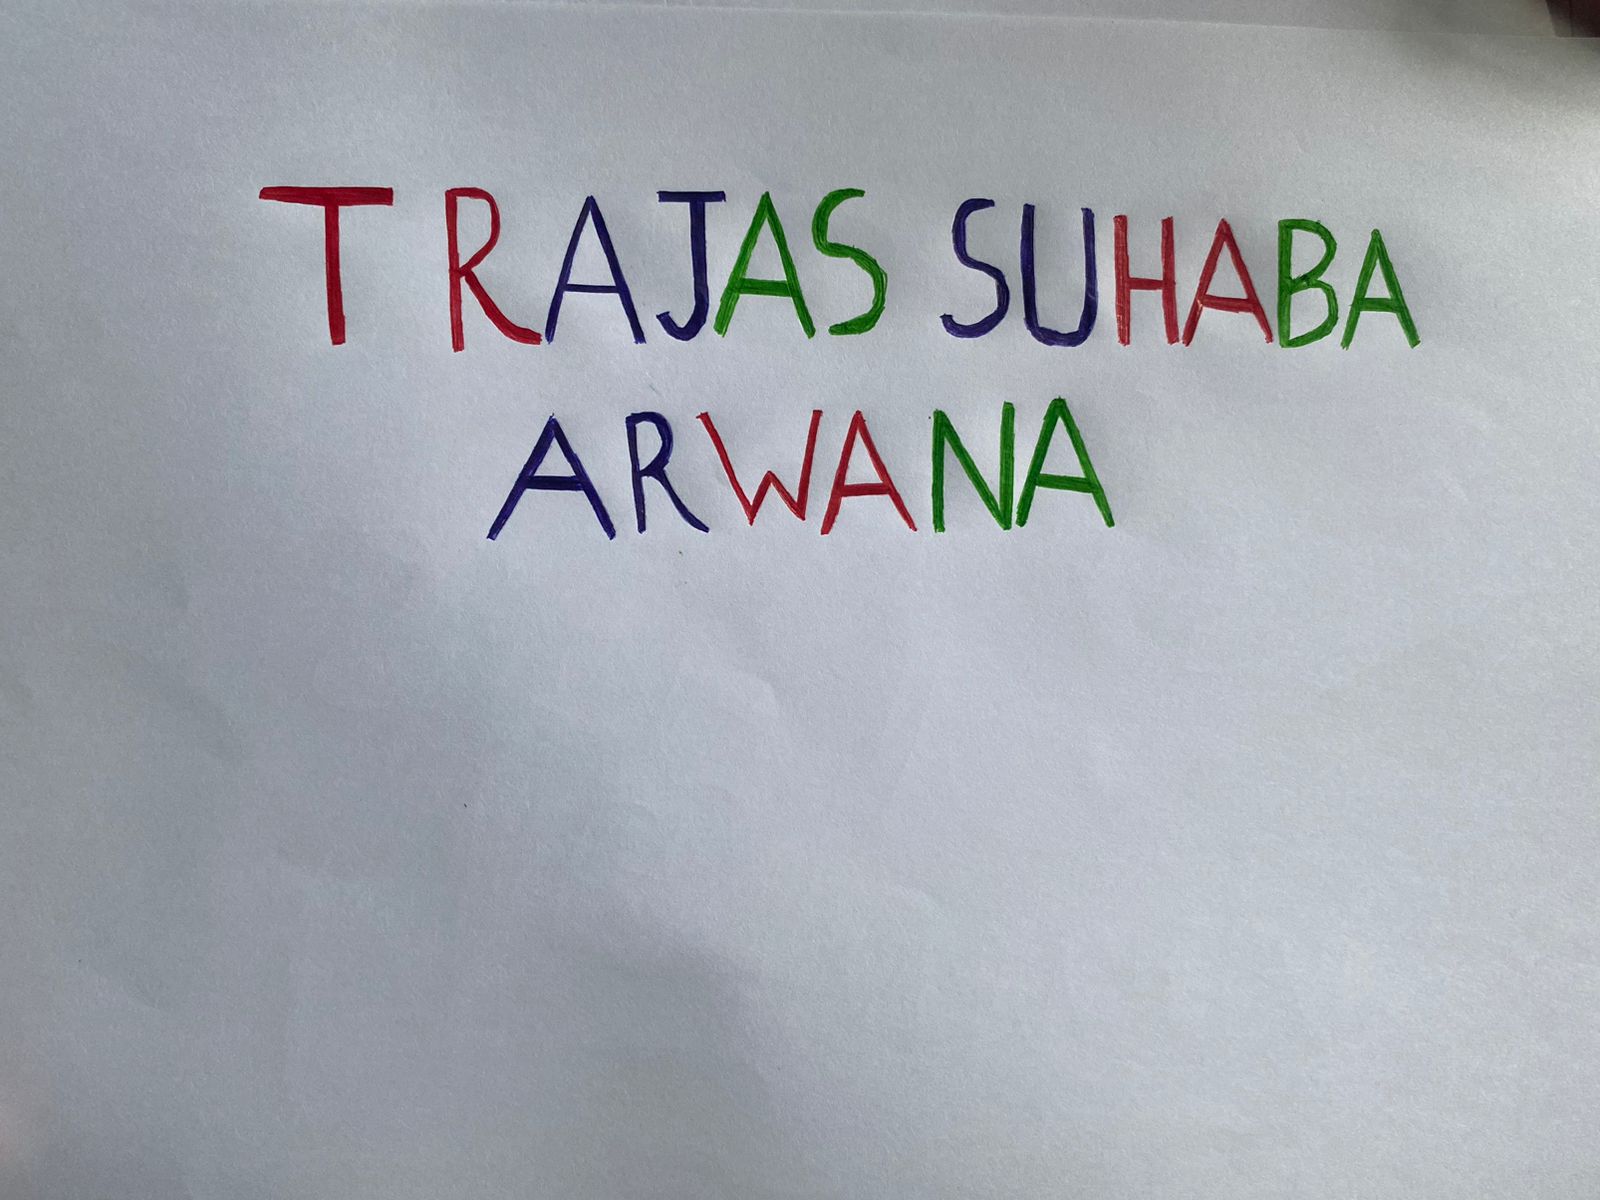 TRAJAS SUHABA
ARWANA